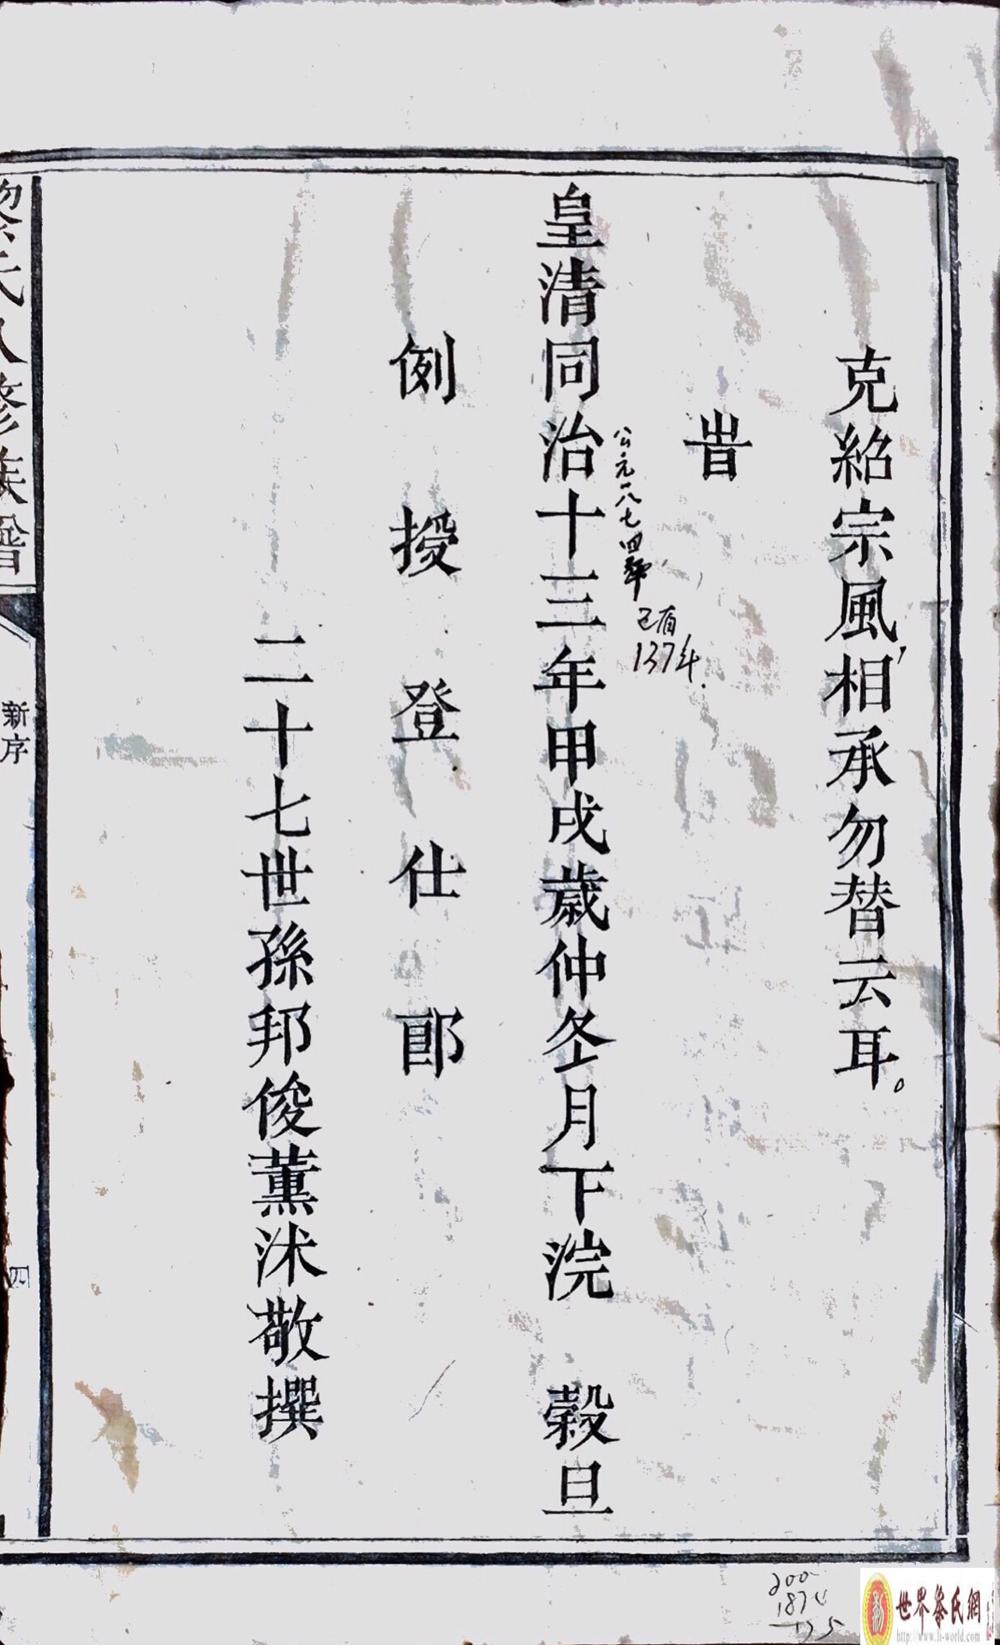 克紹宗風，相承勿替云耳。
旹
皇清同治十三年甲戌歲仲冬月下浣　穀旦
公元一八七四年
已有
1374
例授登仕郎
二十七世孫邦俊薰沐敬撰
黎氏八修族譜
新序
四
200
1874
世界黎氏網
http://www.li-world.com